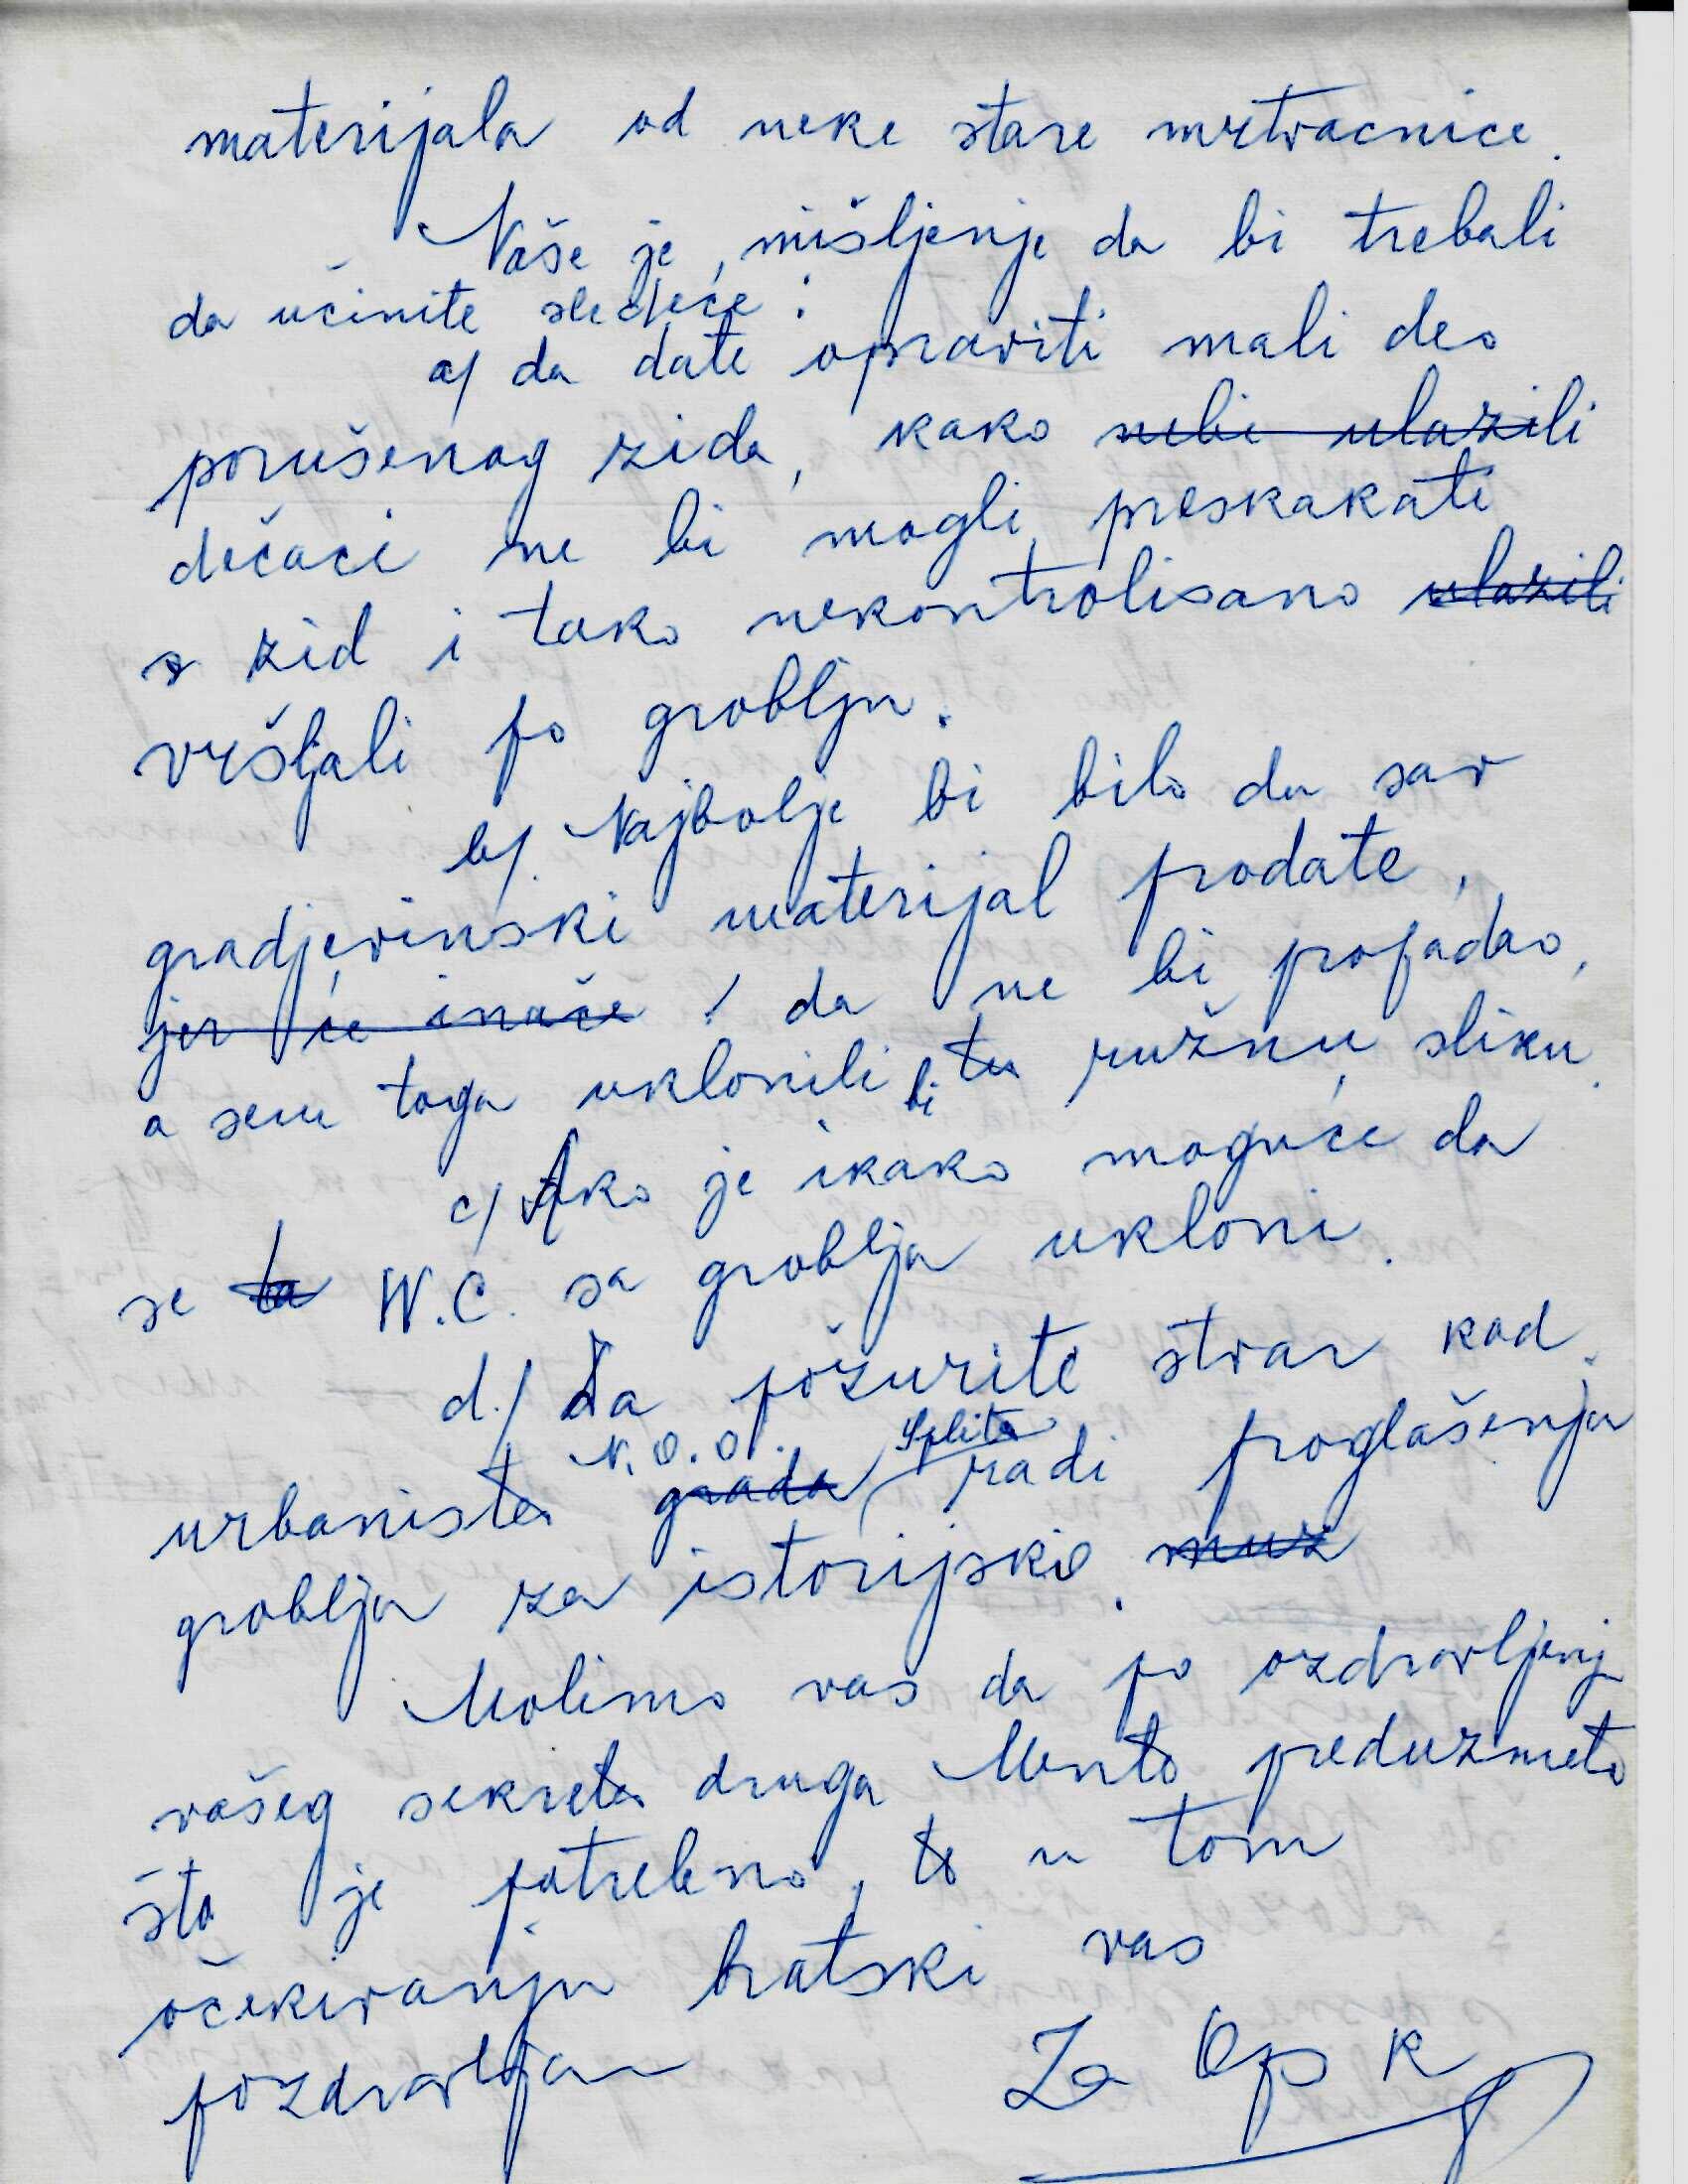 materijala od neke stare mrtvacnice.
Naše je, mišljenje da bi trebali
da učinite sledeće :
a/ da date opraviti mali deo
porušenog zida, kako nebi ulazili
dečaci ne bi mogli preskakati
zid i tako nekontrolisano ulazili
vršljali po groblju.
b/. Najbolje bi bilo da sav
gradjevinski materijal prodate,
jer će inače / da ne bi propadao,
a sem toga uklonili bi tu ružnu sliku.
c/ Ako je ikako moguće da
se ta W.C. sa groblja ukloni.
d./ Da požurite stvar kod
N.O.O. Splita
urbanista grada radi proglašenja
groblja za istorijsko. muz
Molimo vas da po ozdravljenj
vašeg sekreta druga Mento preduzmeto
šta je potrebno, te u tom
očekivanju bratski vas
pozdravljam
Za Op R